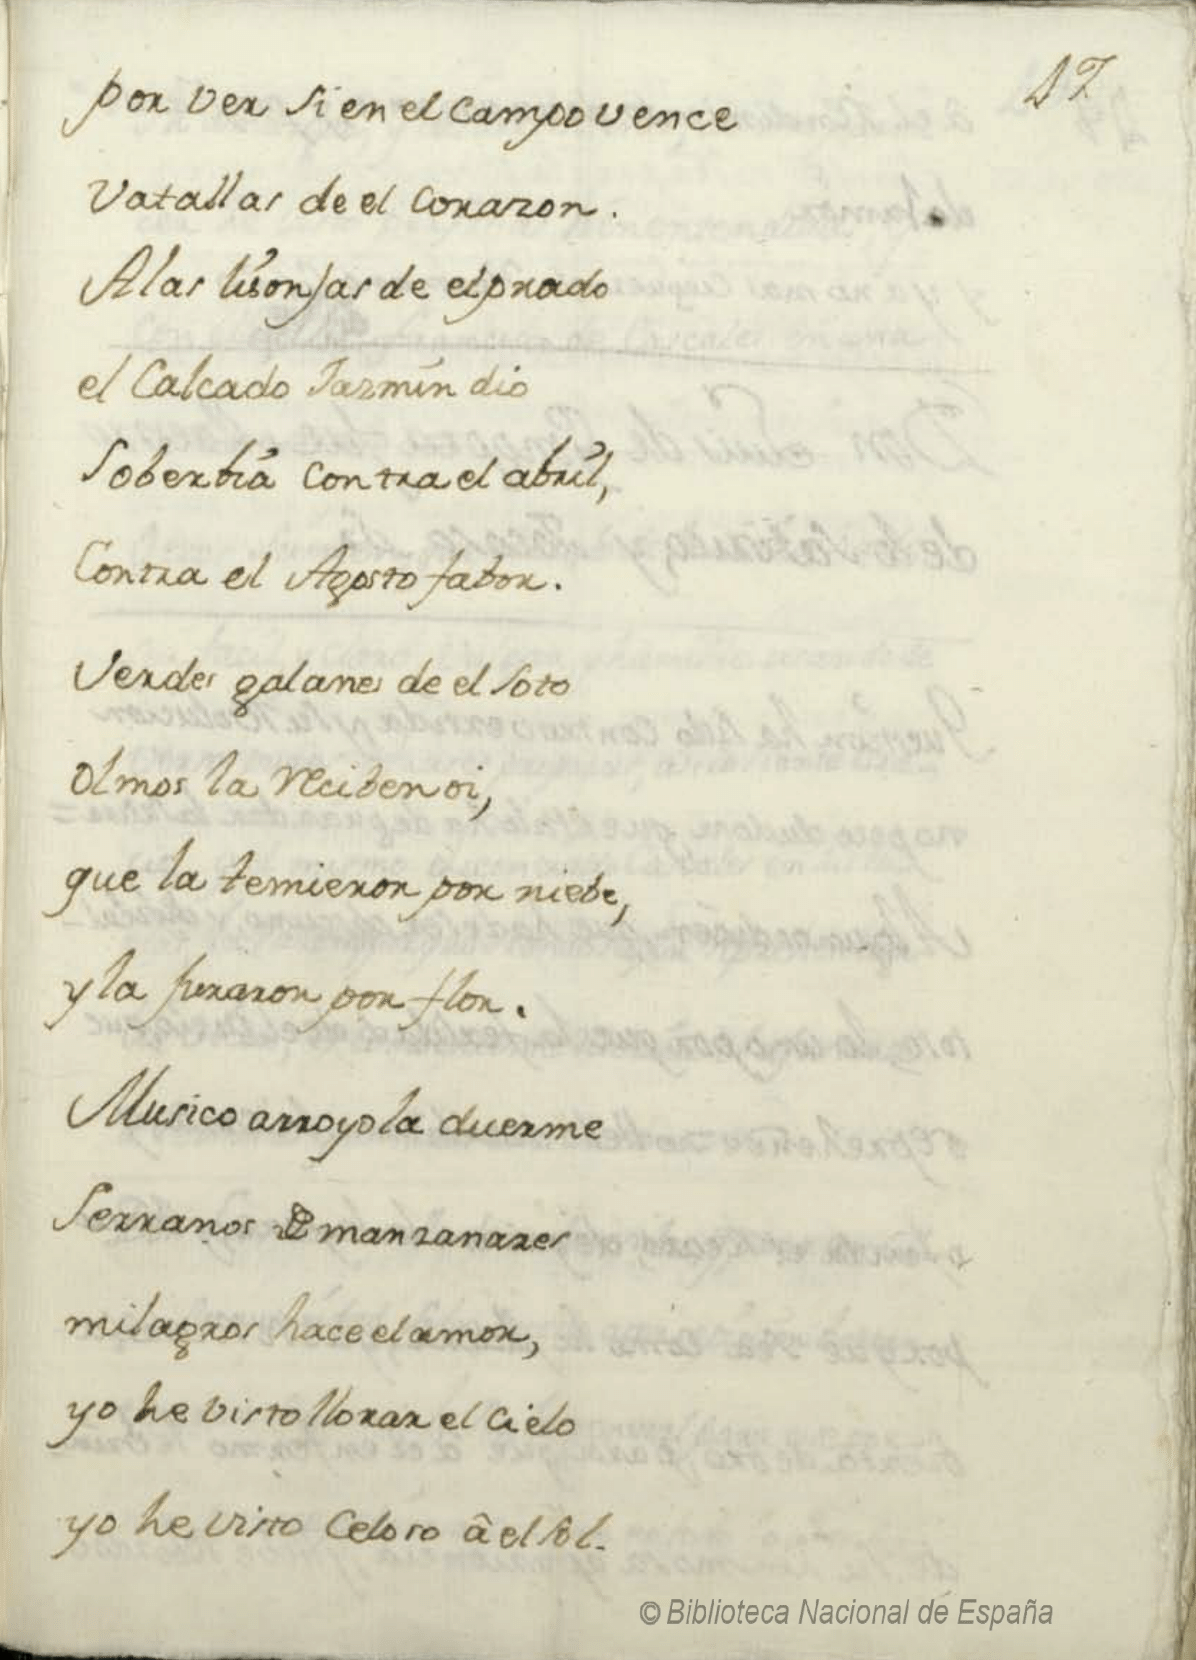 17
por ver si en el campo vence
vatallas de el corazon.
A las lisonjas de el prado
el Calcado Jazmin dio
Soberbiá contra el abril,
Contra el Agosto fabor.
Verdes galanes de el soto
olmos la reciben oi,
que la temieron por niebe,
y la juraron por flor.
Musico arroyo la duerme
Serranos de manzanares
milagros hace el amor,
yo he visto llorar el cielo
yo he visto celoso â el sol.
© Biblioteca Nacional de España